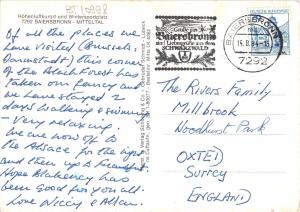 Höhenluftkurort und Wintersportplatz
7292 BAIERSBRONN
Of all the places we
have visited (Brussels,
Darmstadt) this corner
of the Black Forest has
taken our fancy and
we have stayed 2
days bathing & swimming
- very relaxing.
We are now off to
the Alsace for the night
and then up to
Hope Blakeney has
been good for you all.
Love Niccy & Allan.
Grüße aus
Baiersbronn
SCHWARZWALD
BAIERSBRONN
7292
The Rivers Family
Millbrook
Woodhurst Park
OXTED
Surrey
ENGLAND